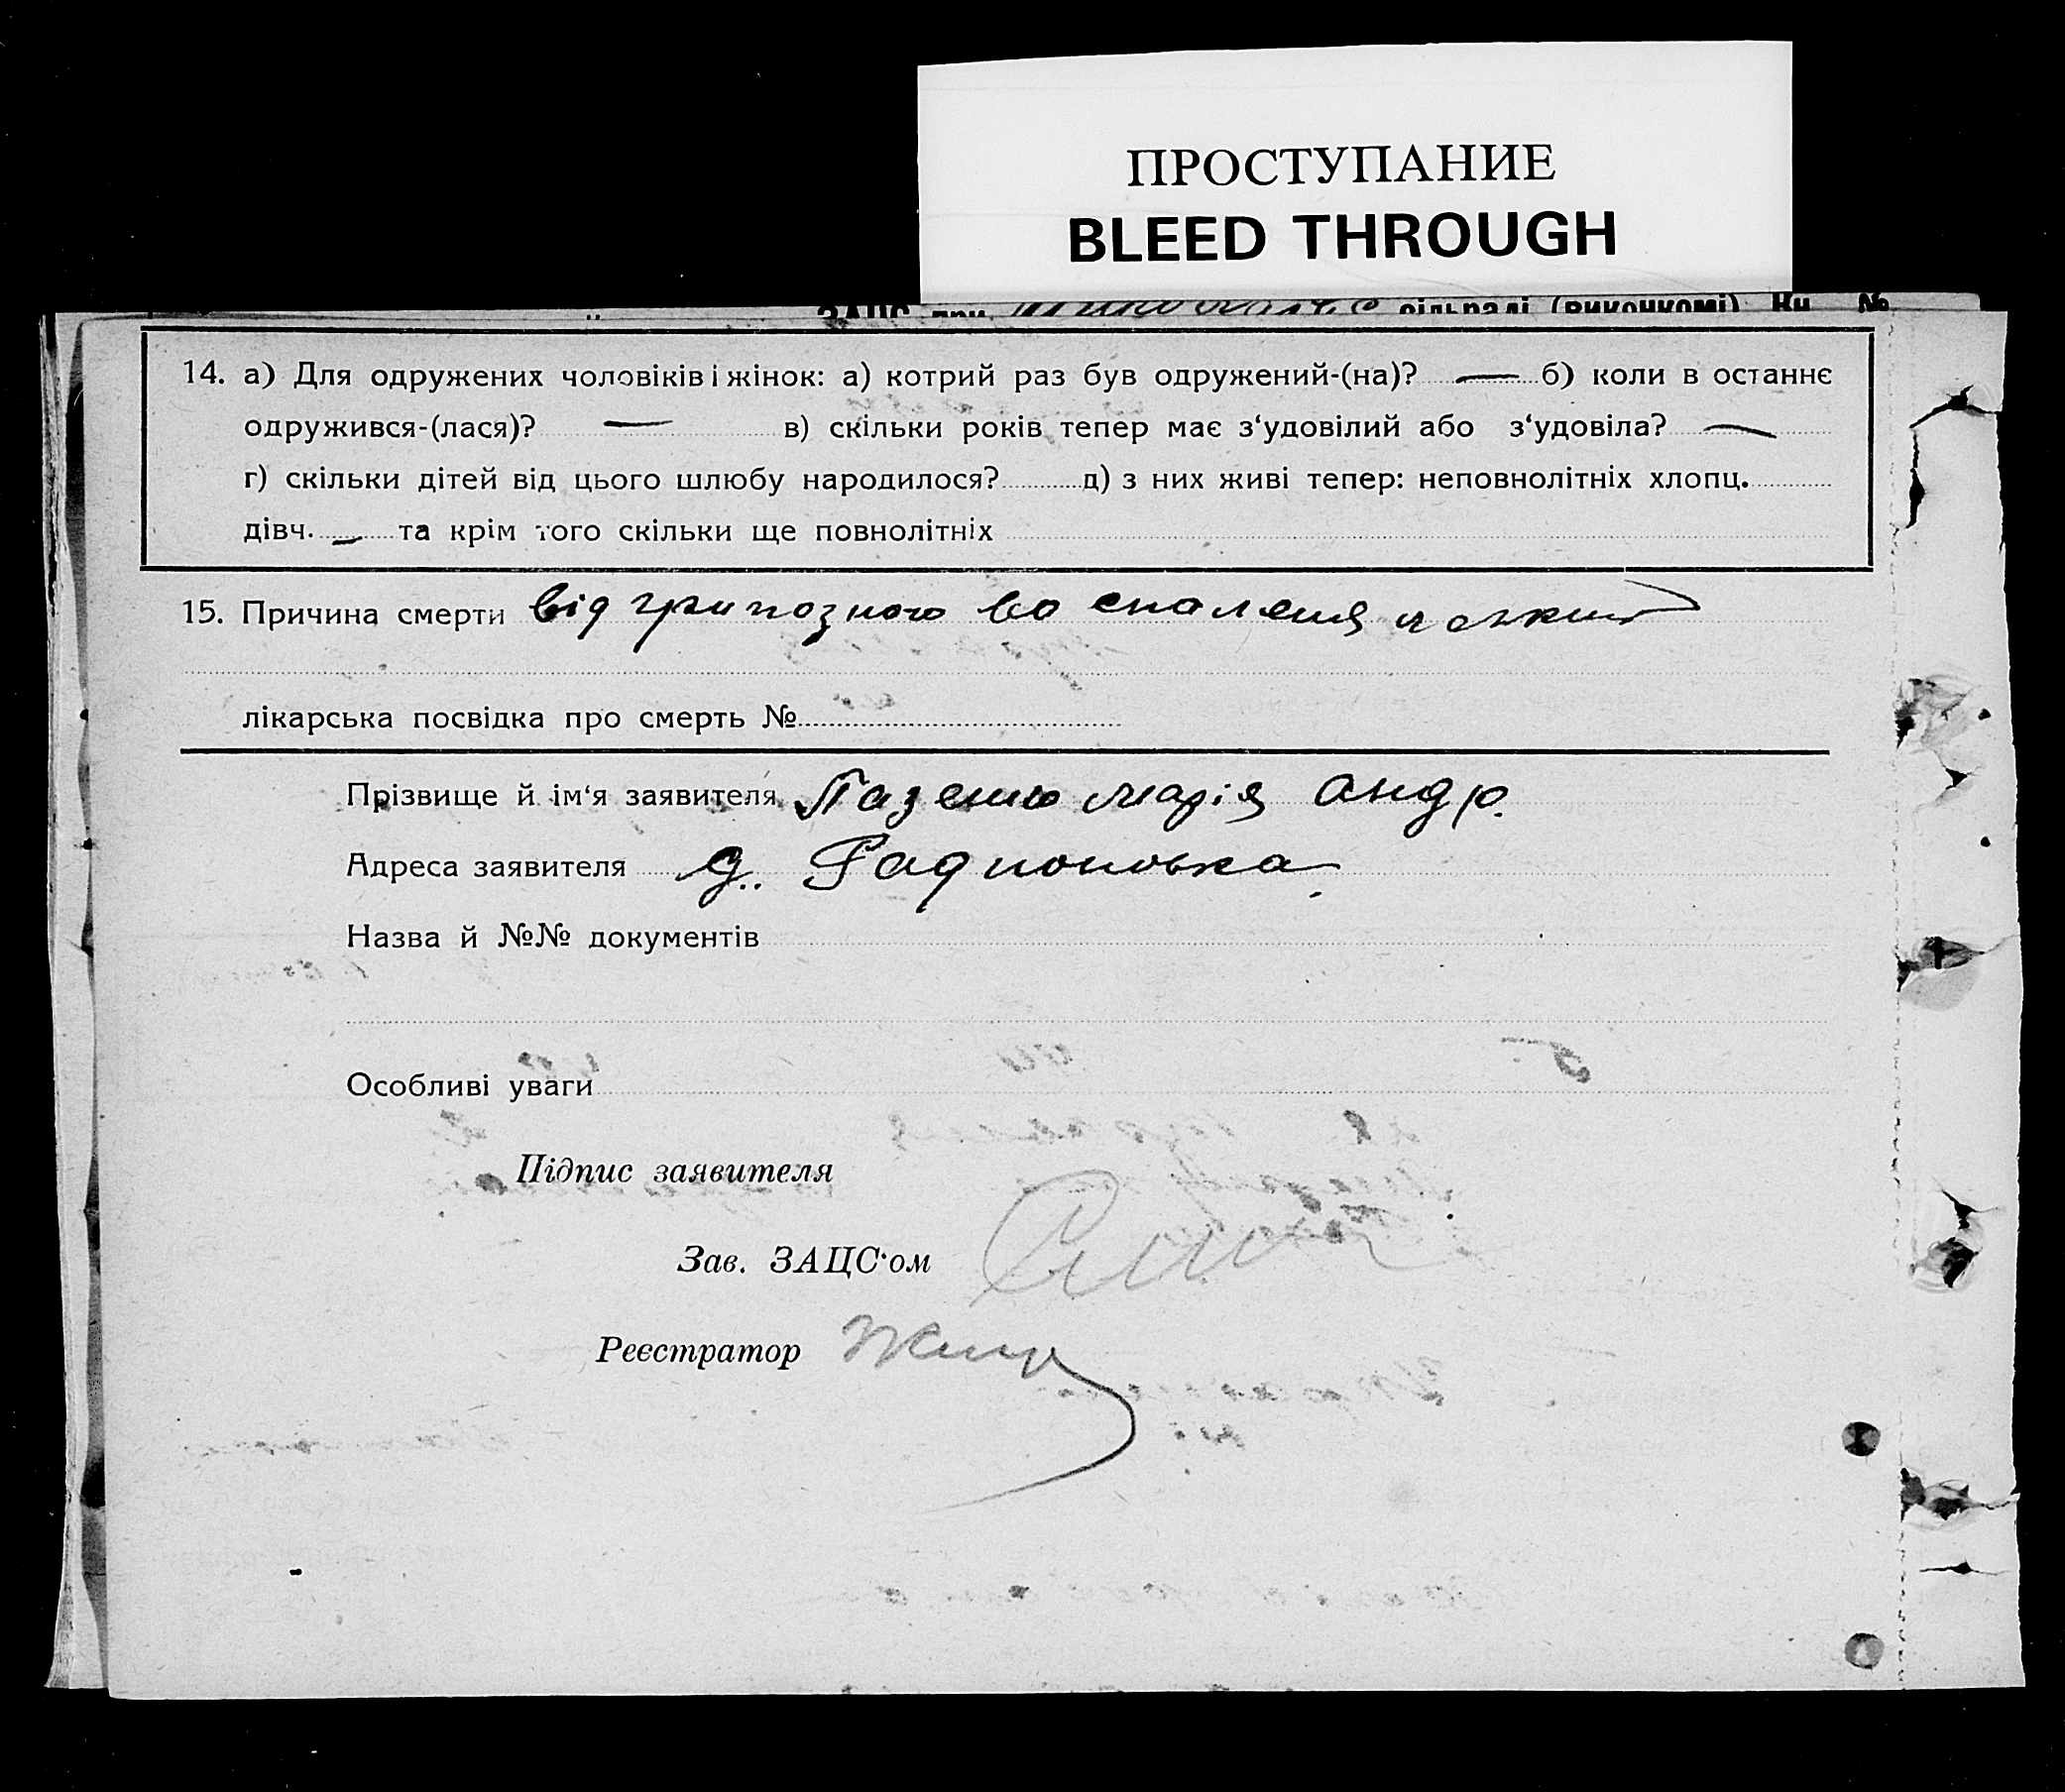 ПРОСТУПАНИЕ
BLEED THROUGH
ЗАЦС при сільраді (виконкомі) Кн. №
14. а) Для одружених чоловіків і жінок: а) котрий раз був одружений-(на)? — б) коли в останнє
одружився-(лася)? — в) скільки років тепер має з‘удовілий або з‘удовіла? —
г) скільки дітей від цього шлюбу народилося? д) з них живі тепер: неповнолітніх хлопц.
дівч. — та крім того скільки ще повнолітніх
15. Причина смерти від грипозного во спаления
лікарська посвідка про смерть №
Прізвище й ім‘я заявителя Пазенко Марія Андр.
Адреса заявителя д. Радионовка
Назва й №№ документів
Особливі уваги
Підпис заявителя
Зав. ЗАЦС‘ом
Реєстратор